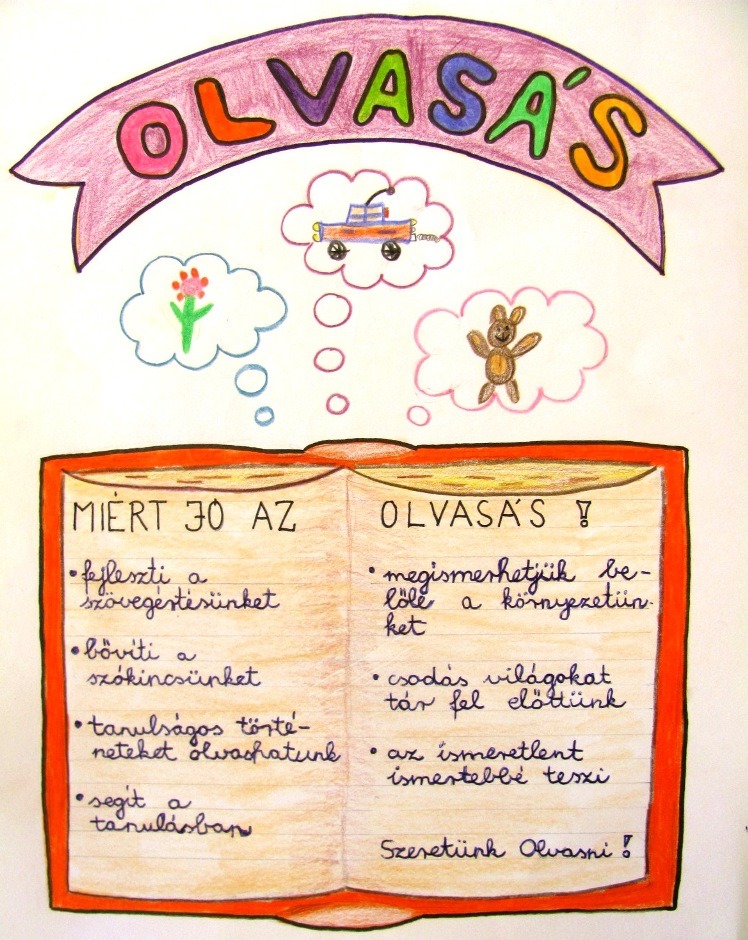 OLVASÁS
MIÉRT JO AZ
• fejleszti a
szövegértésünket
• bővíti a
szókincsünket
• tanulságos törté-
neteket olvashatunk
• segít a
tanulásban
OLVASÁS !
• megismerhetjük be-
lőle a környezetün-
ket
• csodás világokat
tár fel előttünk
• az ismeretlent
ismertebbé teszi
Szeretünk Olvasni !